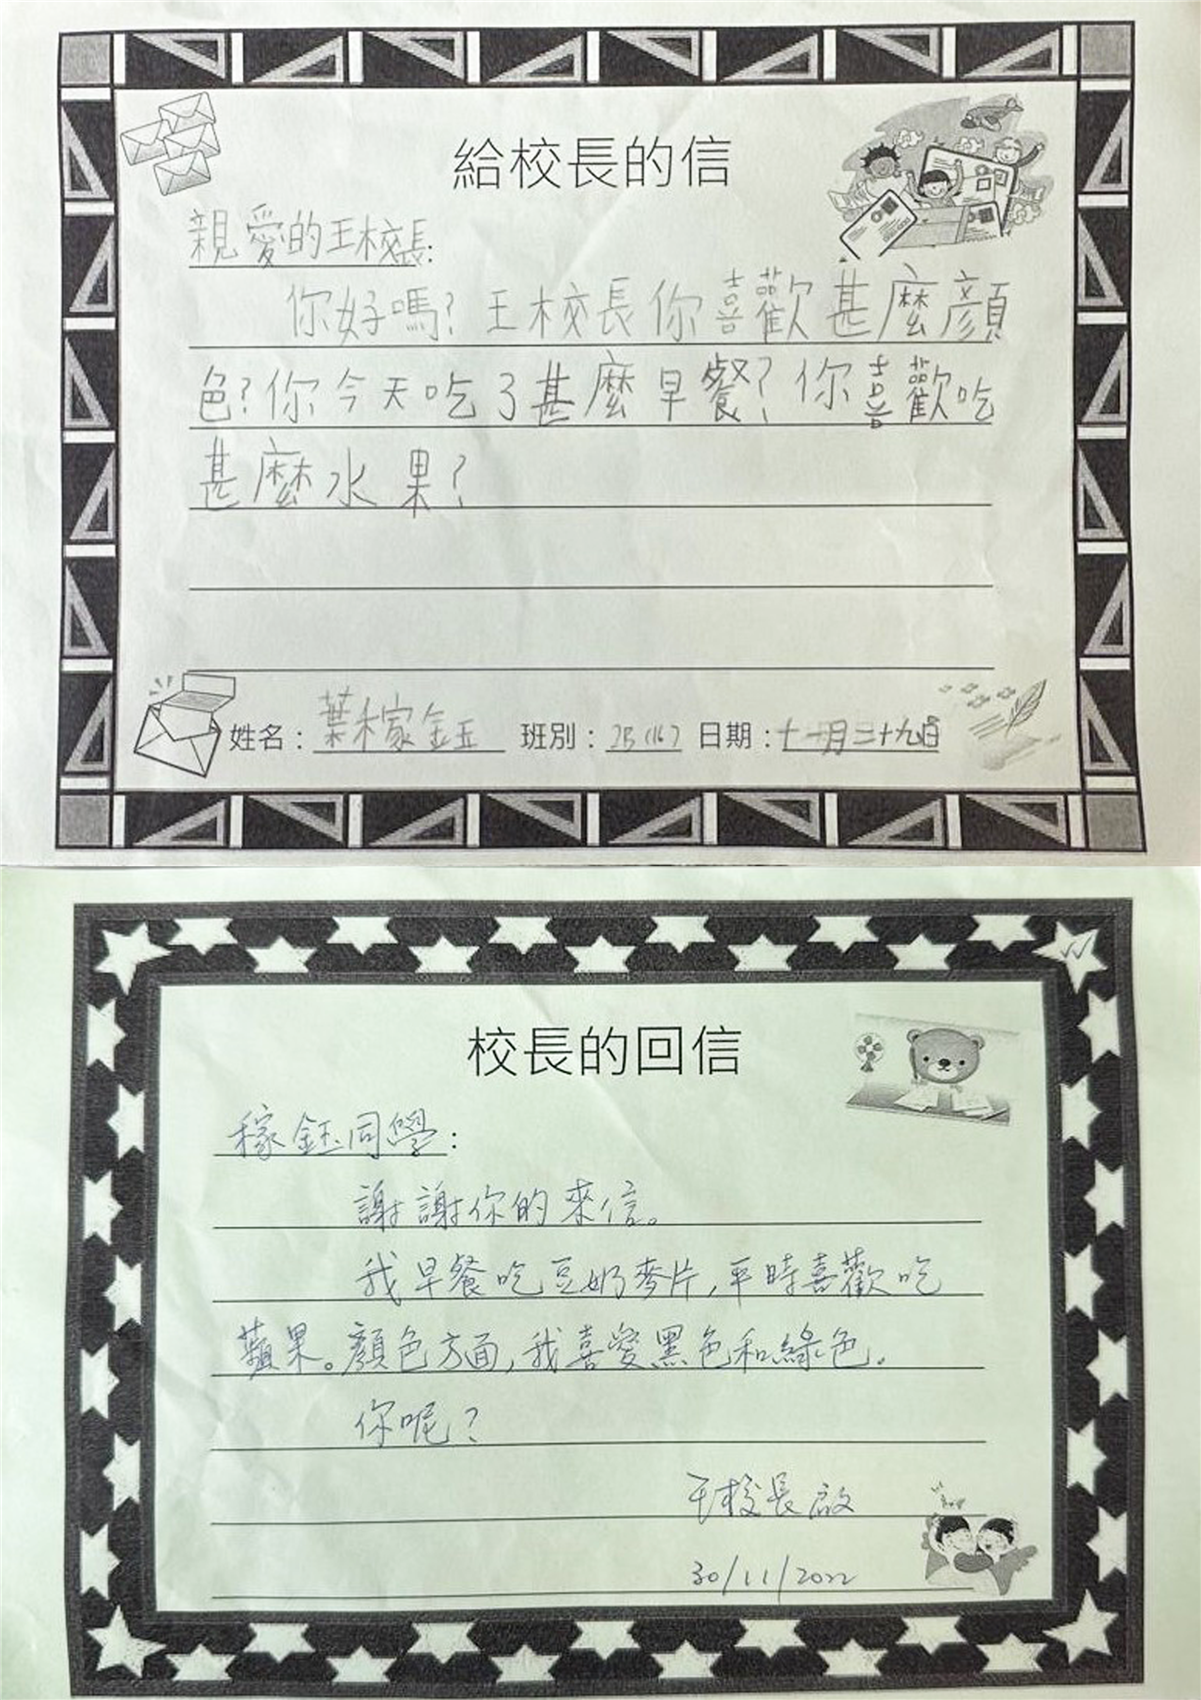 給校長的信
親愛的王校長:
你好嗎?王校長你喜歡甚麼顏
色?你今天吃了甚麼早餐?你喜歡吃
甚麼水果?
姓名:葉稼鈺 班別:2B(16) 日期:十一月二十九日
校長的回信
稼鈺同學:
謝謝你的來信。
我早餐吃豆奶麥片,平時喜歡吃
蘋果。顏色方面,我喜愛黑色和綠色。
你呢?
王校長啟
30/11/2022